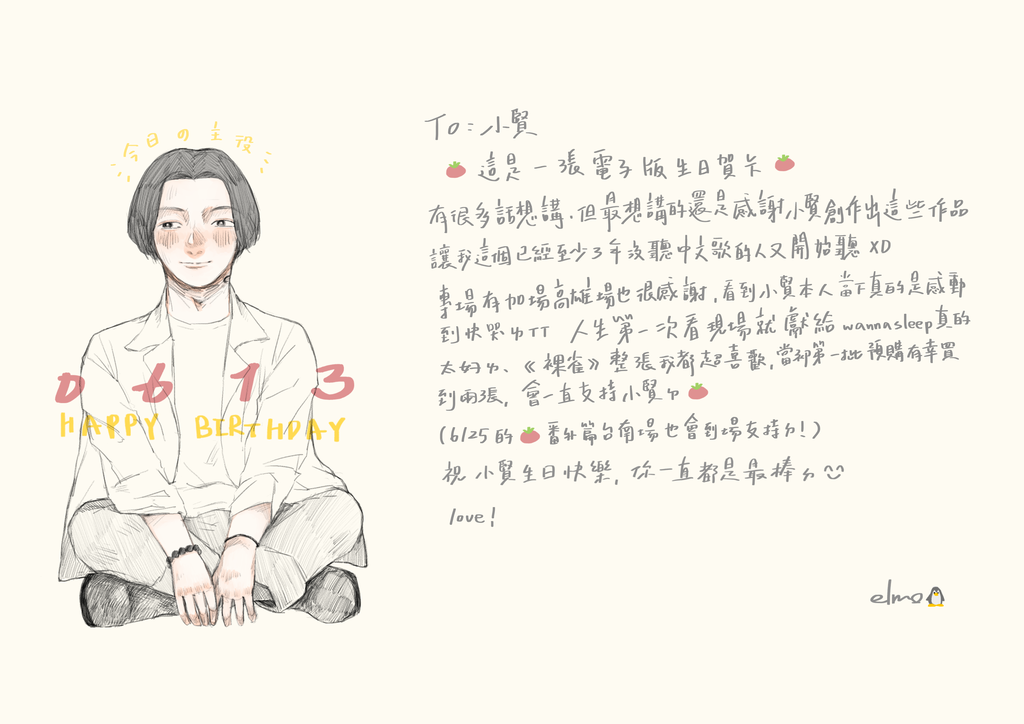 今日の主役
0613
HAPPY BIRTHDAY
To:小賢
🍅這是一張電子版生日賀卡🍅
有很多話想講,但最想講的還是感謝小賢創作出這些作品
讓我這個已經至少3年沒聽中文歌的人又開始聽 XD
專場有加場高雄場也很感謝,看到小賢本人當下真的是感動
到快哭ㄌTT 人生第一次看現場就獻給wannasleep真的
太好ㄌ、《裸雀》整張我都超喜歡,當初第一批預購有幸買
到兩張,會一直支持小賢ㄉ🍅
(6/25的🍅番外篇台南場也會到場支持ㄉ!)
祝小賢生日快樂,你一直都是最棒ㄉ
love!
elmo🐧